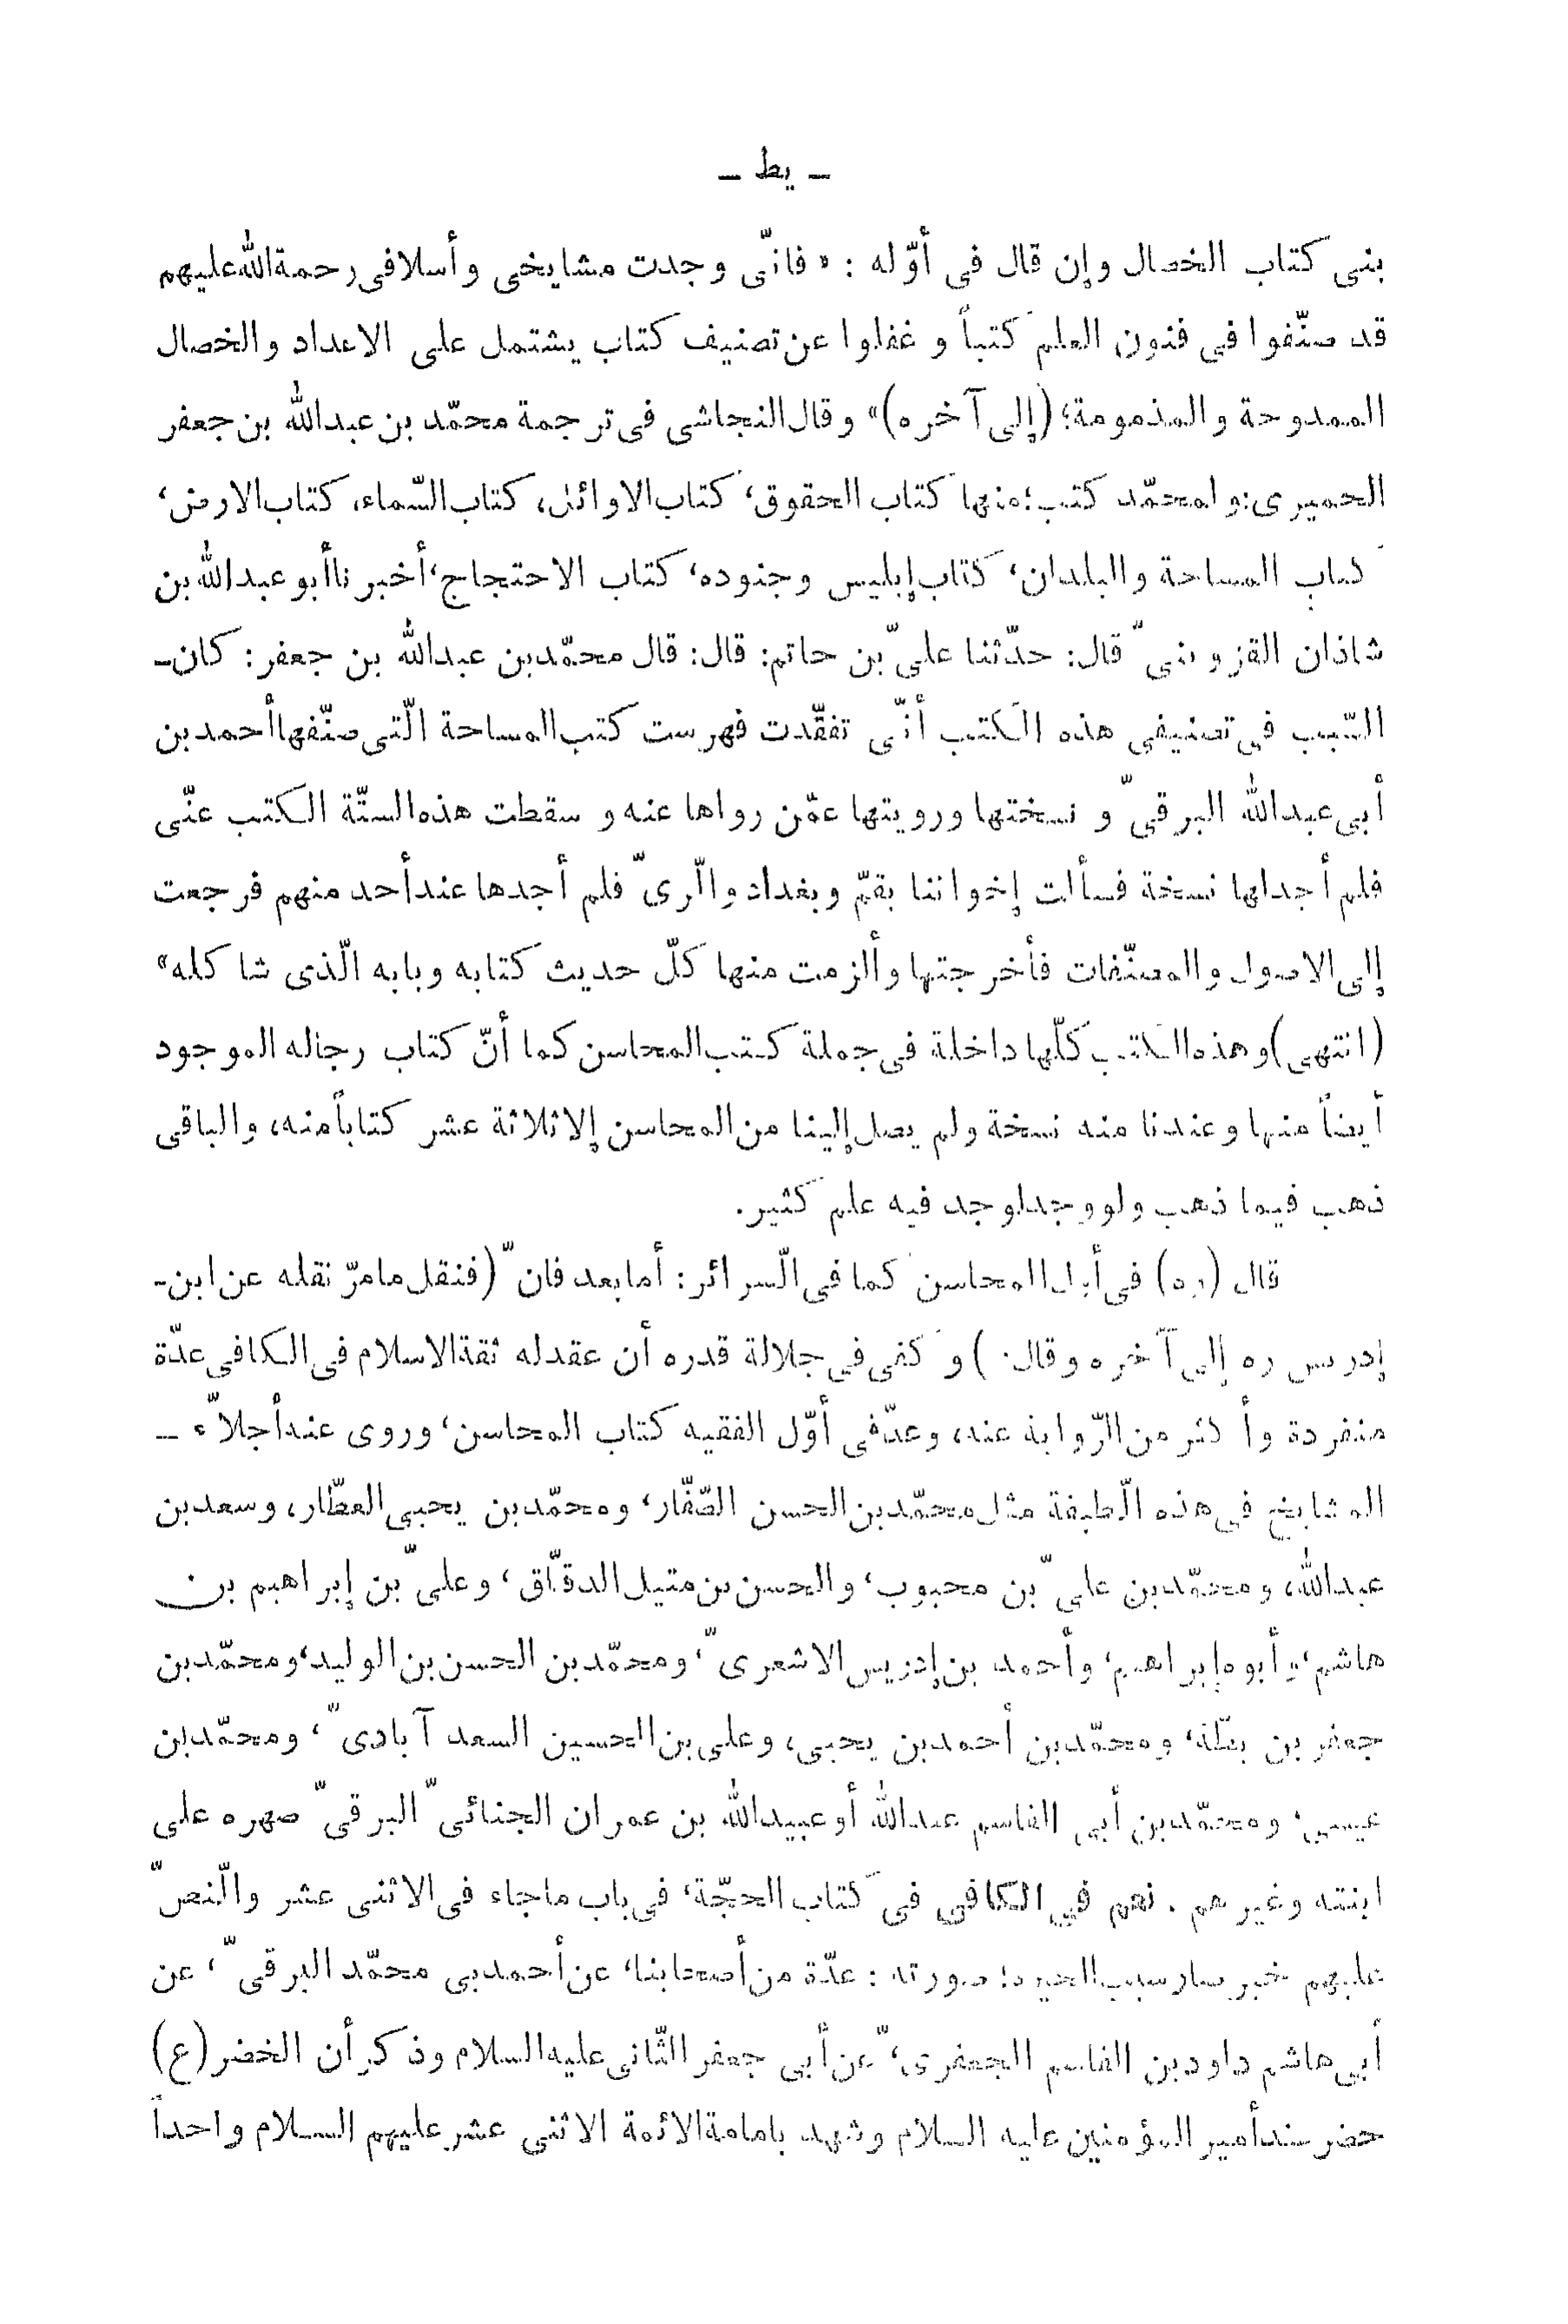 ـ يط ـ
بنى كتاب الخصال وإن قال في أوّله : « فانّى وجدت مشايخى وأسلافى رحمة الله عليهم
قد صنّفوا في فنون العلم كتباً و غفلوا عن تصنيف كتاب يشتمل على الاعداد والخصال
الممدوحة والمذمومة؛ (إلى آخره)» وقال النجاشى فى ترجمة محمّد بن عبدالله بن جعفر
الحميرى: ولمحمّد كتب؛ منها كتاب الحقوق، كتاب الاوائل، كتاب السّماء، كتاب الارض،
كتاب المساحة والبلدان، كتاب إبليس وجنوده، كتاب الاحتجاج، أخبرنا أبو عبدالله بن
شاذان القزوينى ّ قال: حدّثنا علىّ بن حاتم: قال: قال محمّد بن عبدالله بن جعفر: كان-
السّبب في تصنيفي هذه الكتب أنّى تفقّدت فهرست كتب المساحة الّتى صنّفها أحمد بن
أبي عبدالله البرقيّ و نسختها ورويتها عمّن رواها عنه و سقطت هذه الستّة الكتب عنّى
فلم أجد لها نسخة فسألت إخواننا بقمّ وبغداد والّرىّ فلم أجدها عند أحد منهم فرجعت
إلى الاصول والمصنّفات فأخرجتها وألزمت منها كلّ حديث كتابه وبابه الّذى شاكله»
(انتهى) وهذه الكتب كلّها داخلة في جملة كتب المحاسن كما أنّ كتاب رجاله الموجود
أيضاً منها وعندنا منه نسخة ولم يصل إلينا من المحاسن إلا ثلاثة عشر كتاباً منه، والباقى
ذهب فيما ذهب ولو وجد لوجد فيه علم كثير.
قال (ره) في أول المحاسن كما في الّسرائر: أما بعد فان ّ (فنقل ما مرّ نقله عن ابن-
إدريس ره إلى آخره وقال: ) و كفى في جلالة قدره أن عقد له ثقة الاسلام في الكافي عدّة
منفردة وأكثر من الرّواية عنه، وعدّ في أوّل الفقيه كتاب المحاسن، وروى عنه أجلاّء ـ
المشايخ في هذه الّطبقة مثل محمّد بن الحسن الصّفّار، ومحمّد بن يحيى العطّار، وسعد بن
عبدالله، ومحمّد بن علىّ بن محبوب، والحسن بن متيل الدقّاق، وعلىّ بن إبراهيم بن
هاشم، وأبوه إبراهيم، وأحمد بن إدريس الاشعرى ّ، ومحمّد بن الحسن بن الوليد، ومحمّد بن
جعفر بن بطّة، ومحمّد بن أحمد بن يحيى، وعلى بن الحسين السعد آبادى ّ، ومحمّد بن
عيسى، ومحمّد بن أبي القاسم عبدالله أو عبيدالله بن عمران الجنائى ّ البرقى ّ صهره على
ابنته وغيرهم . نعم في الكافى فى كتاب الحجّة، في باب ما جاء فى الاثنى عشر والّنصّ
عليهم خبر صار سبب الحيرة؛ صورته : عدّة من أصحابنا، عن أحمد بى محمّد البرقى ّ، عن
أبي هاشم داود بن القاسم الجعفرىّ، عن أبي جعفر الثّانى عليه السلام وذكر أن الخضر (ع)
حضر عند أمير المؤمنين عليه السلام وشهد بامامة الائمة الاثنى عشر عليهم السلام واحداً